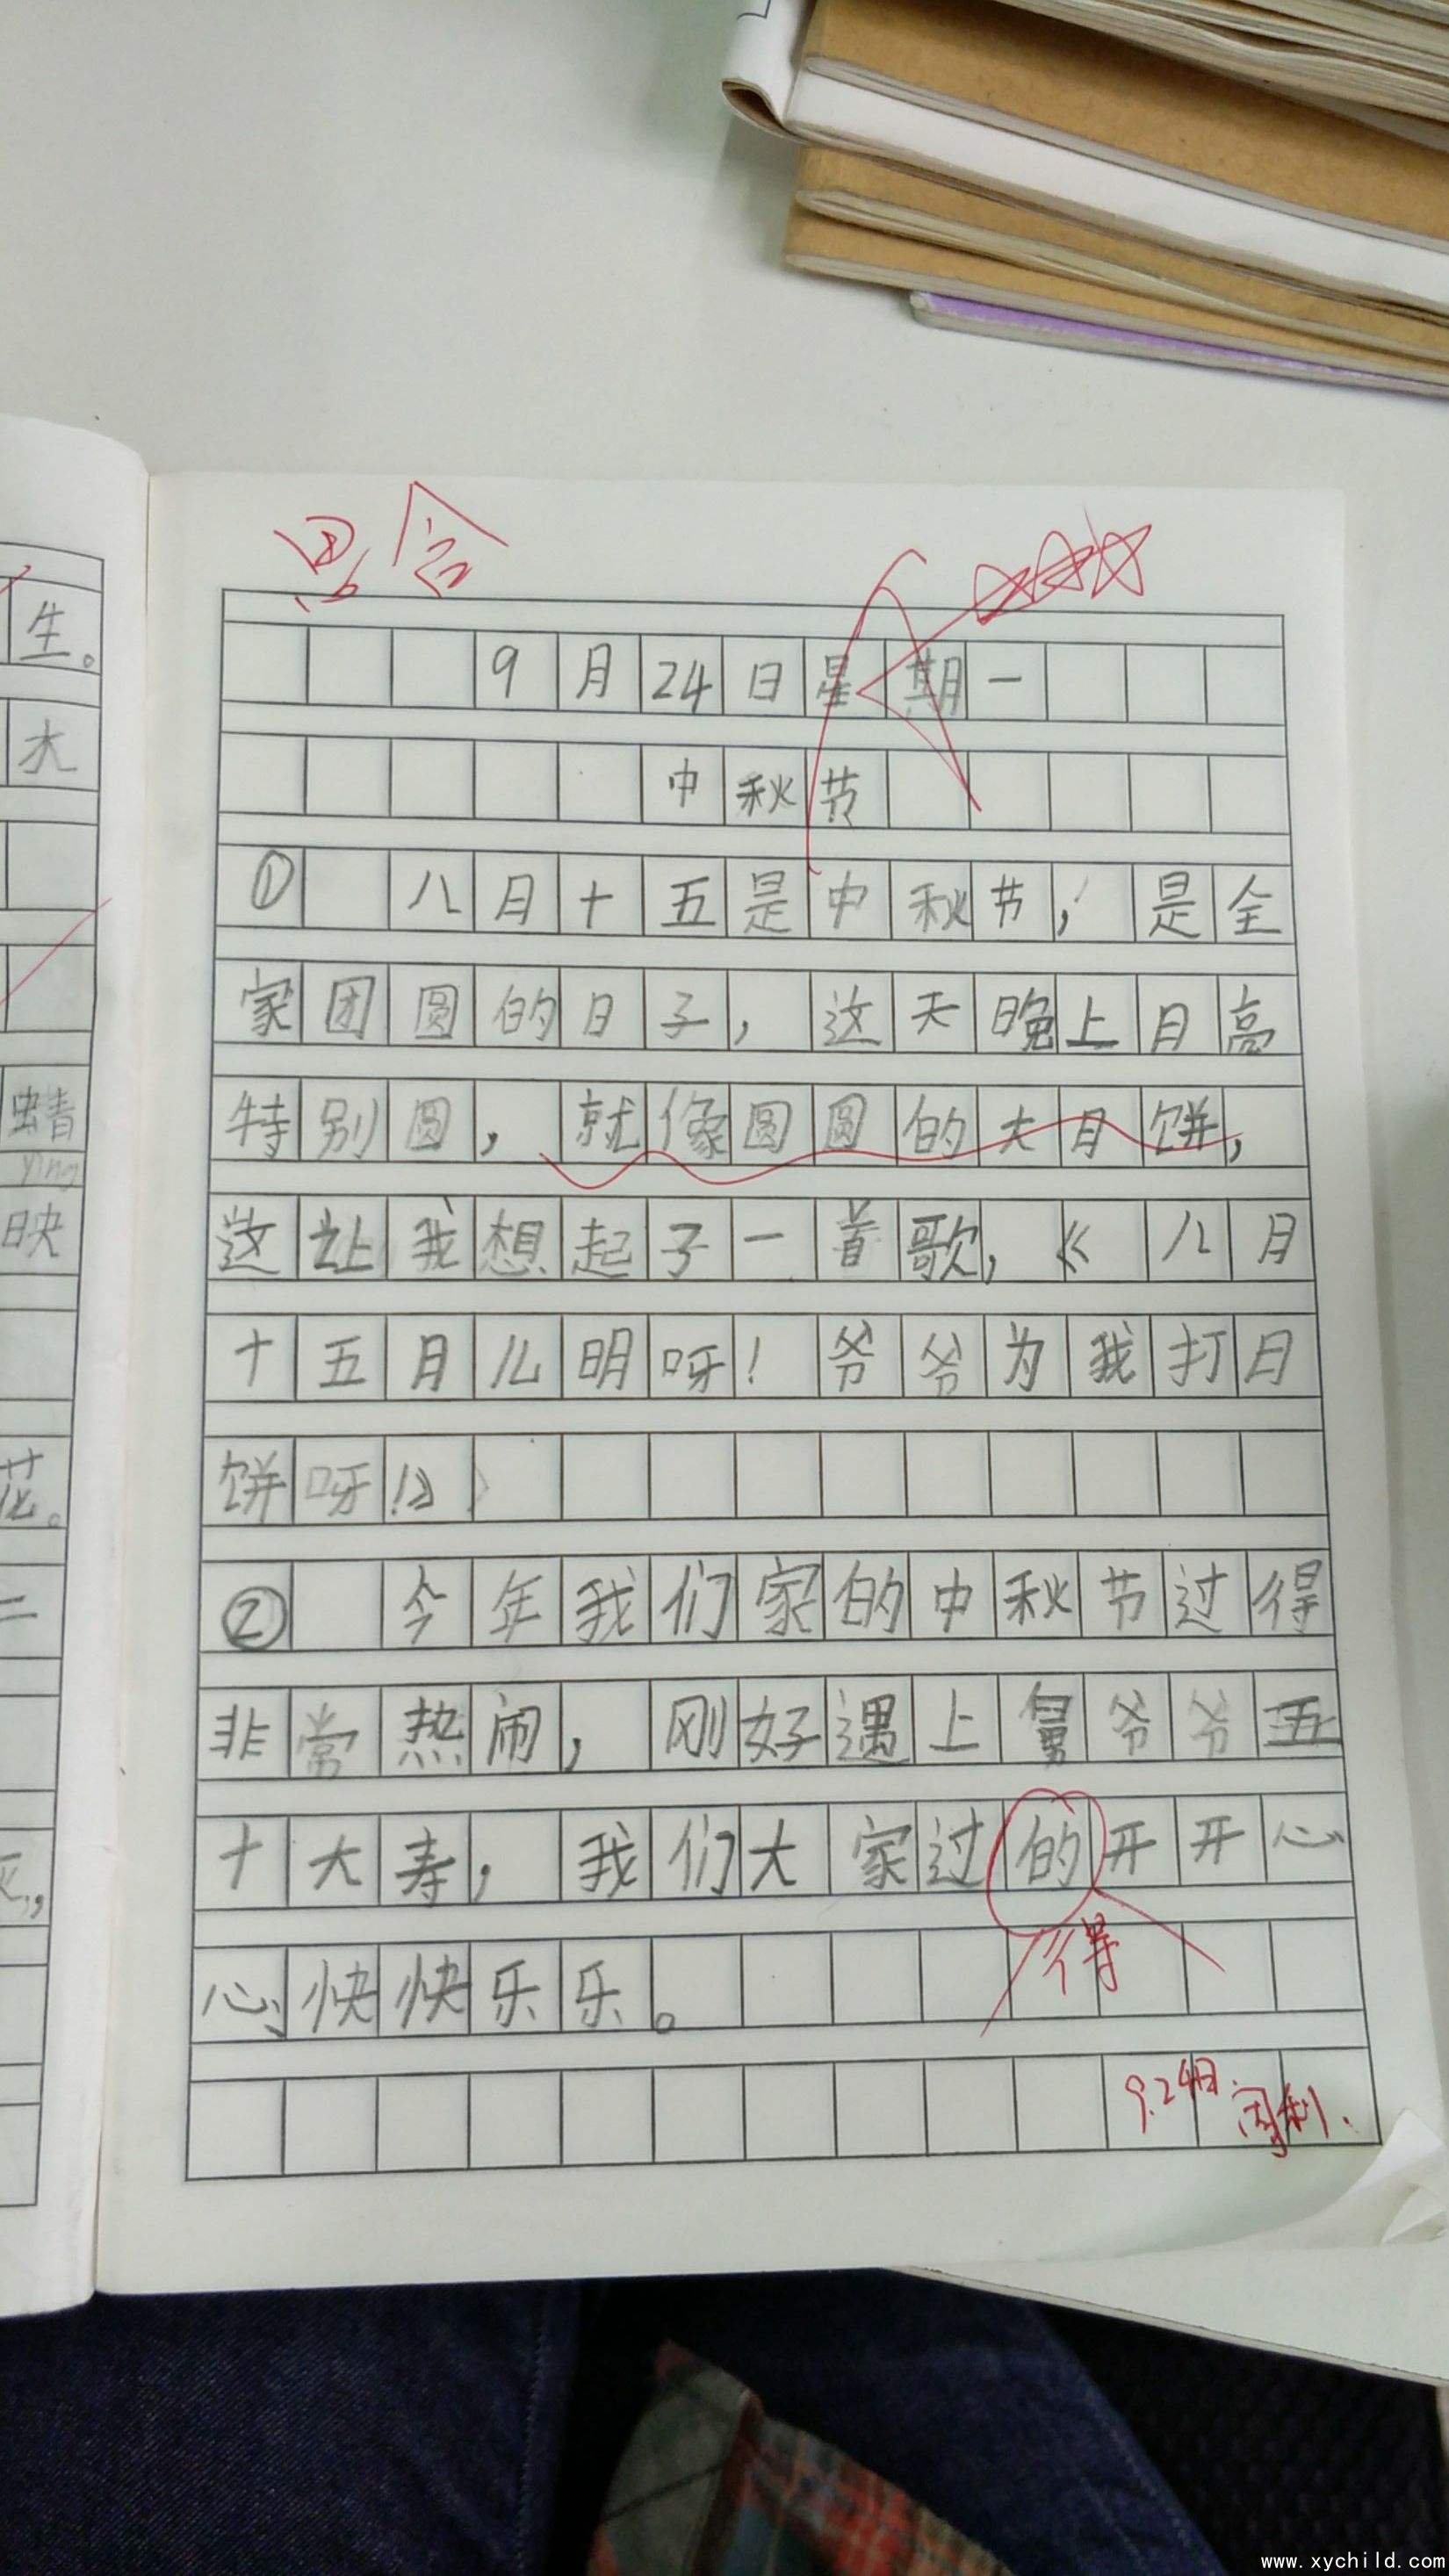 思含
9月24日星期一
中秋节
① 八月十五是中秋节,是全
家团圆的日子,这天晚上月高
特别圆,就像圆圆的大月饼,
这让我想起了一首歌,《八月
十五月儿明呀!爷爷为我打月
饼呀!》
② 今年我们家的中秋节过得
非常热闹,刚好遇上舅爷爷五
十大寿,我们大家过的开开心
得
心快快乐乐。
9.24日
生。
大
蜻
ying
映
花。
二
www.xychild.com